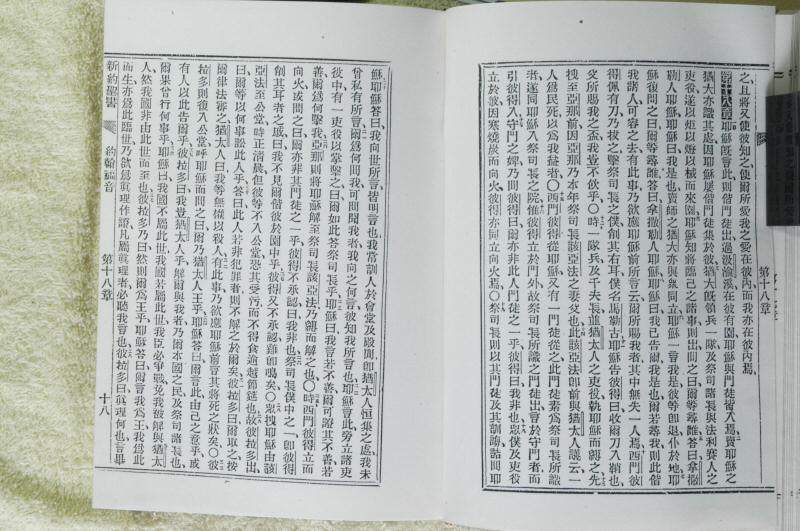 之且將又使彼知之使爾所愛我之愛在彼內而我亦在彼內焉
第十八章耶穌言此則偕門徒出過汲淪溪在彼有園耶穌與門徒皆入焉賣耶穌之
猶大亦識其處因耶穌屢偕門徒集於彼猶大旣領兵一隊及祭司諸長與法利賽人之
吏役遂以炬以燈以械而來園耶穌知將臨己之諸事則出問之曰爾等尋誰答曰拿撒
勒人耶穌耶穌曰我是也賣師之猶大亦與衆同立耶穌一言我是彼等卽退仆於地耶
穌復問之曰爾等尋誰答曰拿撒勒人耶穌耶穌曰我已告爾我是也爾若尋我則此偕
我諸人可容之去有此事乃欲應耶穌前所言云爾所賜我者其中無失一人焉西門彼
得佩有刀乃拔之擊祭司長之僕削其右耳僕名馬勒古耶穌告彼得曰收爾刀入鞘也
父所賜我之盃我豈不飲乎〇時一隊兵及千夫長並猶太人之吏役執耶穌而縛之先
拽至亞那前因亞那乃本年祭司長該亞法之妻父也此該亞法卽前與猶太人議云一
人爲民死以爲我益者〇西門彼得從耶穌又有一門徒從之此門徒素爲祭司長所識
者遂同耶穌入祭司長之院惟彼得立於門外故祭司長所識之門徒出言於守門者而
引彼得入守門之婢乃問彼得曰爾亦非此人門徒之一乎彼得曰我非也衆僕及吏役
立於彼因寒燒炭而向火彼得亦同立向火焉〇祭司長則以其門徒及其訓誨詰問耶
第十八章
穌耶穌答曰我向世所言皆明言也我常訓人於會堂及殿間卽猶太人恒集之處我未
曾私有所言爾何問我可問聞我者我向之何言彼知我所言也耶穌言此旁立諸吏
役中有一吏役以掌擊之曰爾如此答祭司長乎耶穌曰我言若不善爾可證其不善若
善爾爲何擊我亞那則將耶穌解至祭司長該亞法乃縛而解之也〇時西門彼得立而
向火或問之曰爾亦非其門徒之一乎彼得不承認曰我非也祭司長僕中之一卽彼得
削其耳者之戚曰我不見爾偕彼於園中乎彼得又不承認雞卽鳴矣〇衆拽耶穌由該
亞法至公堂時正清晨但彼等不入公堂恐其受污而不得食逾越節筵也故彼拉多出
曰爾等以何事訟此人乎答曰此人若非犯罪者則不解之於爾矣彼拉多曰爾取之按
爾律法審之猶太人曰我等無權以殺人有此事乃欲應耶穌前言其將死之狀矣〇彼
拉多則復入公堂呼耶穌而問之曰爾乃猶太人王乎耶穌答曰爾言此由己之意乎或
有人以此告爾乎彼拉多曰我豈猶太人乎解爾與我者乃爾本國之民及祭司諸長也
爾果曾行何事乎耶穌曰我國不屬此世我國若屬此世我臣必爭戰免我被解與猶太
人然我國非由此世而至也彼拉多乃曰然則爾爲王乎耶穌答曰爾言我爲王我爲此
而生亦爲此臨世乃欲爲眞理作證凡屬眞理者必聽我言也彼拉多曰眞理何也言畢
新約聖書
約翰福音
第十八章
十八